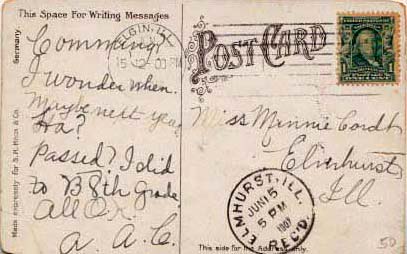 This Space For Writing Messages
Comming?
I wonder when.
Maybe next year
Ha?
Passed? I did
to B 8th Grade
All O.K.
A. A. C.
Germany
Made expressly for S. H. & Co.
ELGIN, ILL.
POST CARD
Miss Minnie
Elmhurst
Ill.
ELMHURST, ILL.
JUN 15
5 PM
1907
REC'D.
This side for the Address Only.
50